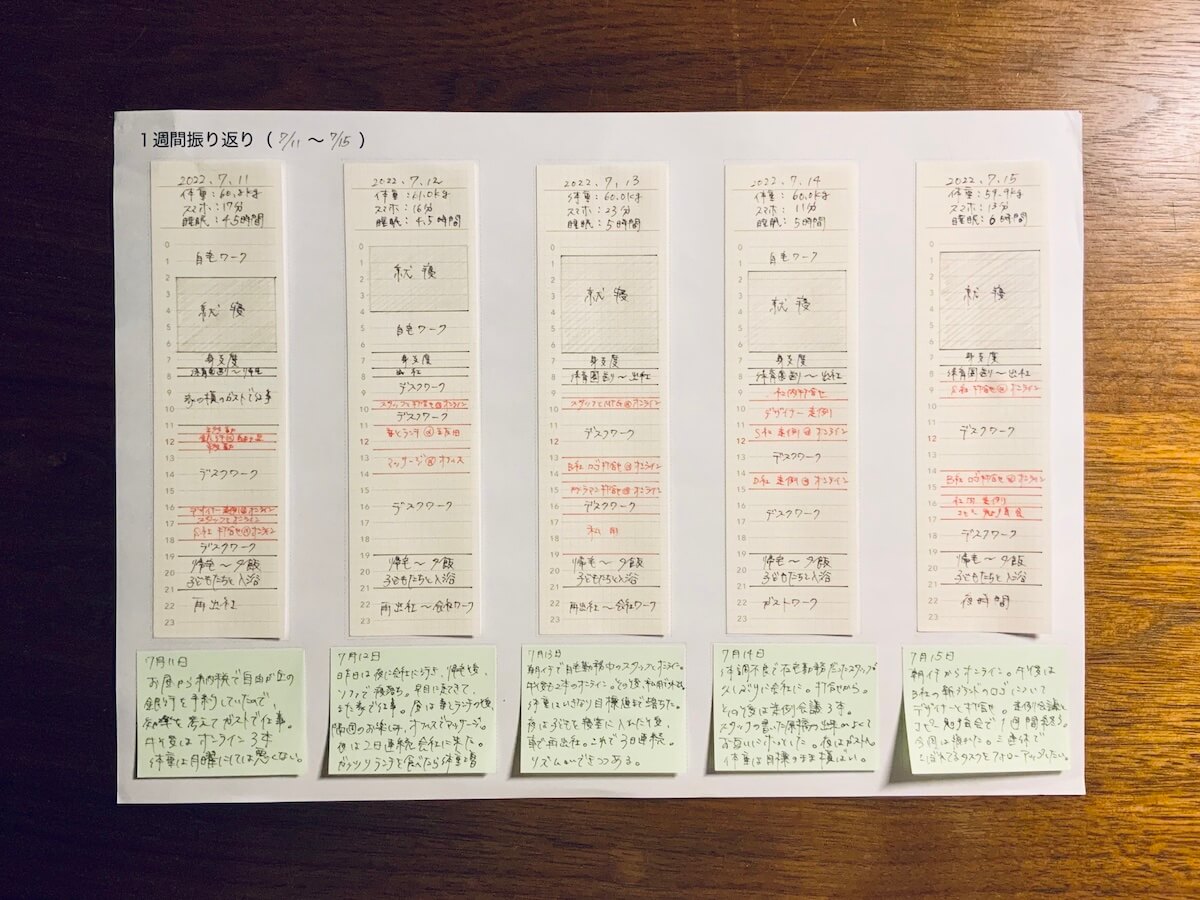 1週間振り返り（ 7/11 〜 7/15 ）
2022.7.11
体重：60.8kg
スマホ：17分
睡眠：4.5時間
0
自宅ワーク
1
2
3
就寝
4
5
6
7
身支度
8
9
10
11
12
13
14
デスクワーク
15
16
17
スタッフとオンライン
18
デスクワーク
19
帰宅〜夕飯
20
子どもたちと入浴
21
22
再出社
23
2022.7.12
体重：61.0kg
スマホ：16分
睡眠：4.5時間
0
1
就寝
2
3
4
5
自宅ワーク
6
7
身支度
8
出社
9
デスクワーク
10
デスクワーク
11
12
13
14
15
16
デスクワーク
17
18
19
帰宅〜夕飯
20
子どもたちと入浴
21
22
再出社〜会社ワーク
23
2022.7.13
体重：60.0kg
スマホ：23分
睡眠：5時間
0
1
2
就寝
3
4
5
6
7
身支度
8
保育園送り〜出社
9
10
11
デスクワーク
12
13
14
15
16
デスクワーク
17
私用
18
19
帰宅〜夕飯
20
子どもたちと入浴
21
22
再出社〜会社ワーク
23
2022.7.14
体重：60.0kg
スマホ：11分
睡眠：5時間
0
自宅ワーク
1
2
3
就寝
4
5
6
7
身支度
8
保育園送り〜出社
9
社内打合せ
10
デザイナー定例
11
S社 定例@オンライン
12
13
デスクワーク
14
D社 定例@オンライン
15
16
デスクワーク
17
18
19
帰宅〜夕飯
20
子どもたちと入浴
21
22
ガストワーク
23
2022.7.15
体重：59.9kg
スマホ：13分
睡眠：6時間
0
1
2
就寝
3
4
5
6
7
身支度
8
保育園送り〜出社
9
10
11
デスクワーク
12
13
14
B社 ロゴ打合せ@オンライン
15
16
社内定例
17
コピー勉強会
18
デスクワーク
19
帰宅〜夕飯
20
子どもたちと入浴
21
22
夜時間
23
7月11日
お昼から病院で自由が丘の
銀行を予約していたので、
効率を考えてガストで仕事。
午後はオンライン3本
体重は月曜にしては悪くない。
7月12日
昨日は夜に会社に行き、帰宅後、
ソファで寝落ち。早目に起きてきて、
また家で仕事。昼は妻とランチの後、
隔週のお楽しみ、オフィスでマッサージ。
夜は2日連続会社に来た。
ガッツリランチを食べたら体重増
7月13日
朝イチで自宅勤務中のスタッフとオンライン。
午後も2本のオンライン。その後、私用で外出
体重はいきなり目標値まで落ちた。
夜は子どもと寝室に入れた後、
車で再出社。これで3日連続。
リズムができつつある。
7月14日
体調不良で在宅勤務だったスタッフが
久しぶりに会社に。打合せから
午後は定例会議3本。
スタッフの書いた原稿の出来がよくて
お互いにホッとした。夜はガストへ。
体重は目標のまま横ばい。
7月15日
朝イチからオンライン。午後は
B社の新ブランドのロゴについて
デザイナーと打合せ。定例会議と
コピー勉強会で1週間終了。
今週は強かった。三連休で
こぼれてるタスクをフォローアップしたい。